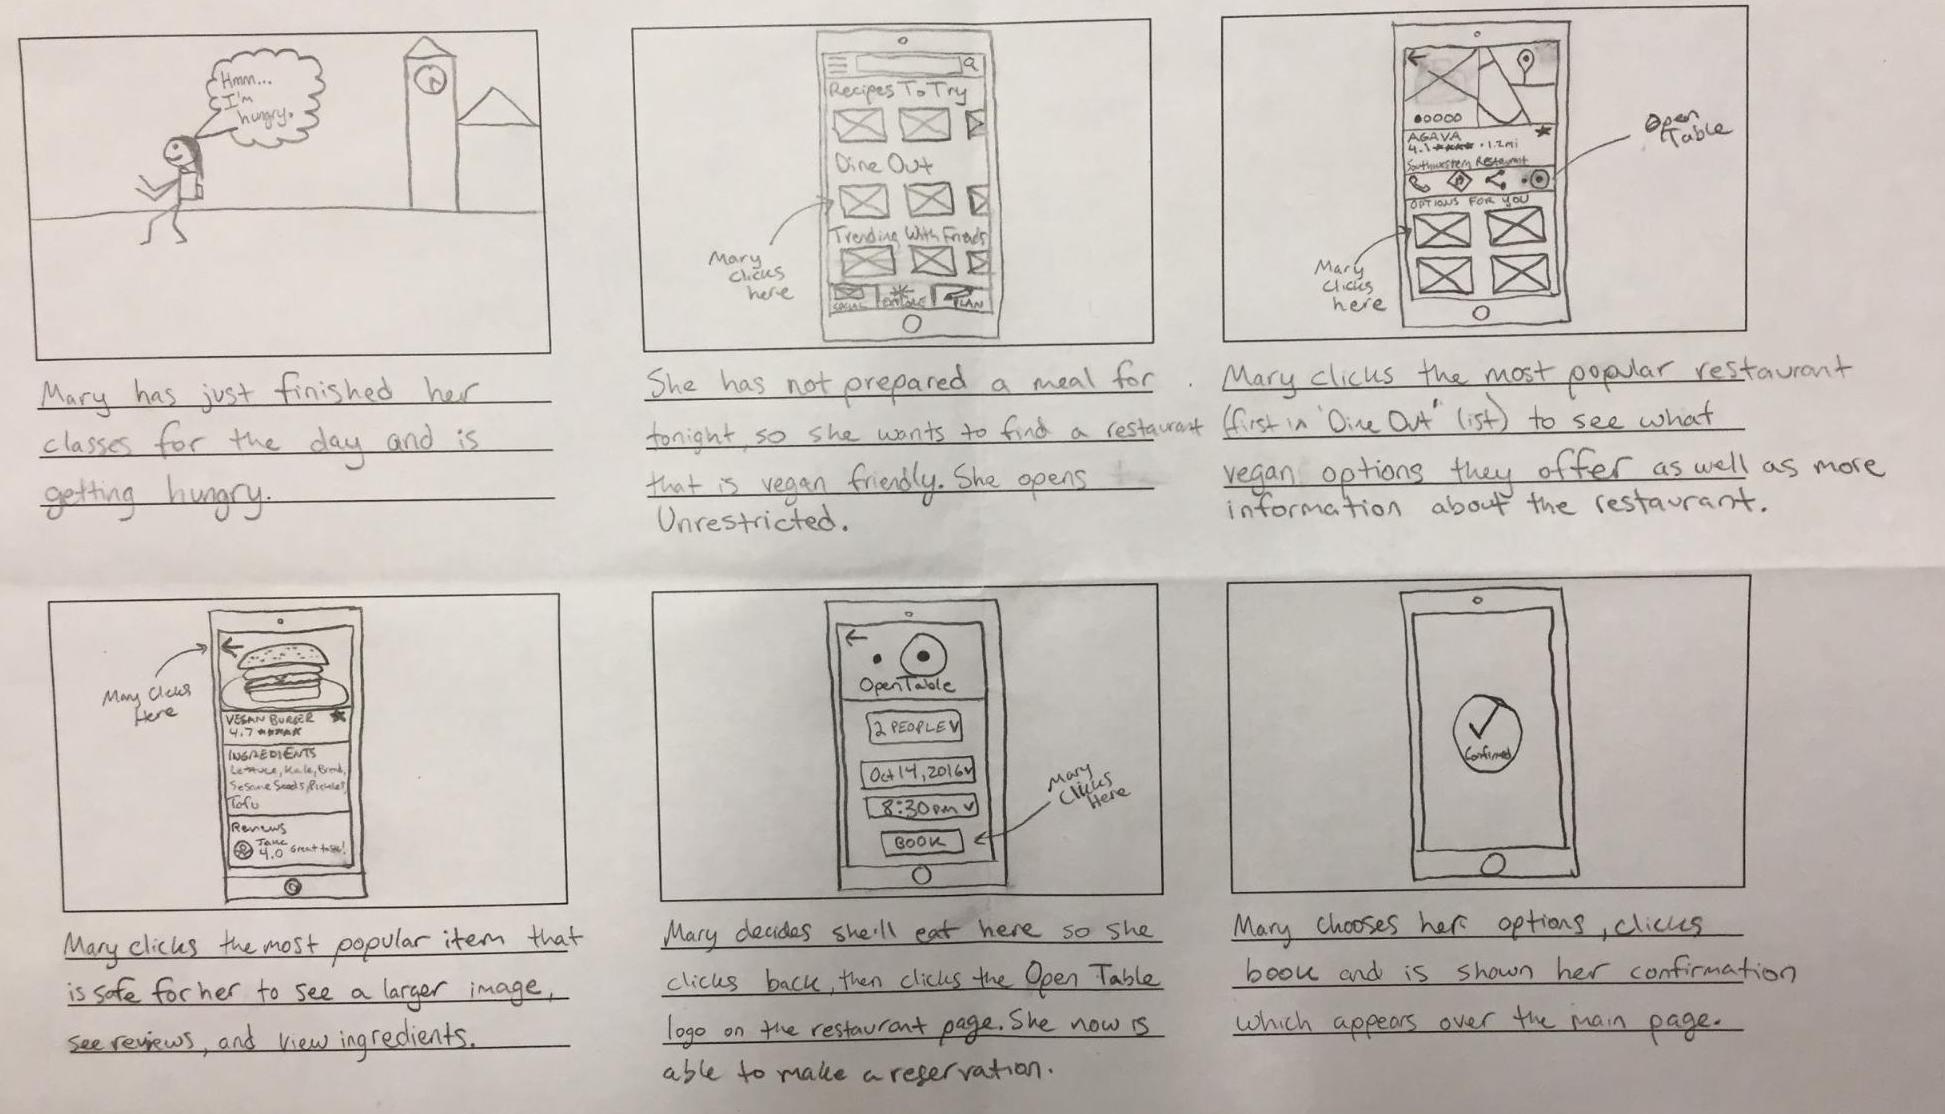 Hmm...
I'm
hungry.
Mary has just finished her
classes for the day and is
getting hungry.
Recipes To Try
Dine Out
Trending With Friends
SOCIAL
EXPLORE
PLAN
Mary
clicks
here
She has not prepared a meal for
tonight, so she wants to find a restaurant
that is vegan friendly. She opens
Unrestricted.
AGAVA
4.1 ★★★★ · 1.2mi
Southwestern Restaurant
OPTIONS FOR YOU
Open
Table
Mary
clicks
here
Mary clicks the most popular restaurant
(first in "Dine Out" list) to see what
vegan options they offer as well as more
information about the restaurant.
Mary Clicks
Here
VEGAN BURGER
4.7 ★★★★★
INGREDIENTS
Lettuce, Kale, Bread,
Sesame Seeds, Pickles,
Tofu
Reviews
4.0 Great taste!
Mary clicks the most popular item that
is safe for her to see a larger image,
see reviews, and view ingredients.
OpenTable
2 PEOPLE V
Oct 14, 2016 V
8:30pm V
BOOK
Mary
Clicks
Here
Mary decides she'll eat here so she
clicks back, then clicks the Open Table
logo on the restaurant page. She now is
able to make a reservation.
Confirmed
Mary chooses her options, clicks
book and is shown her confirmation
which appears over the main page.